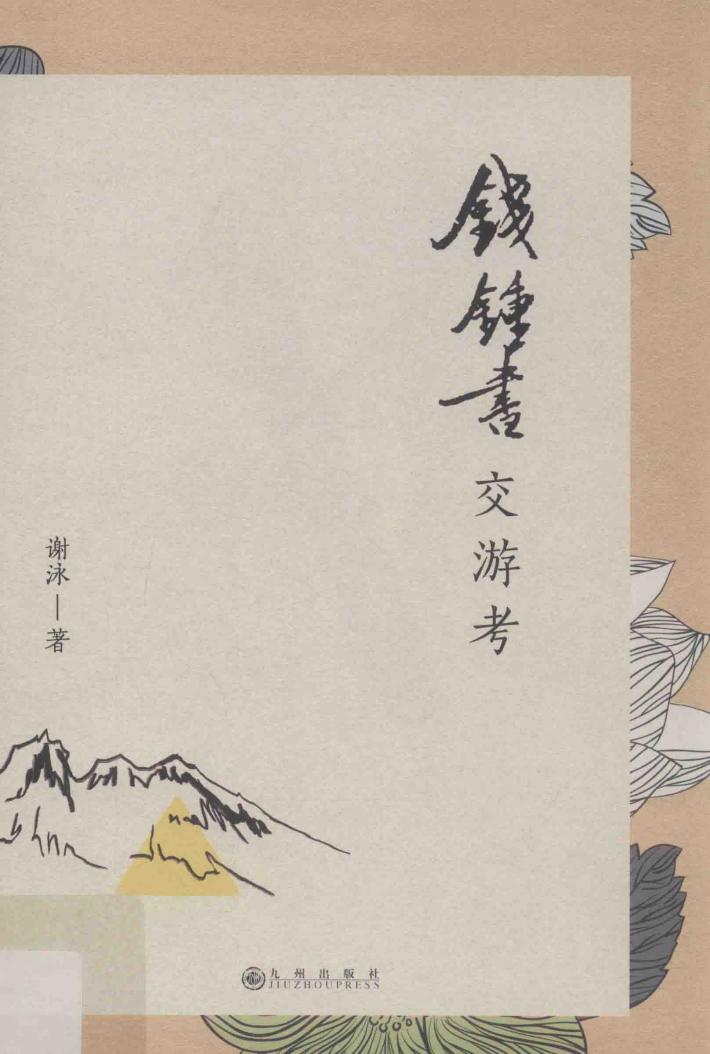 錢鍾書
交游考
谢泳
著
九州出版社
JIUZHOUPRESS